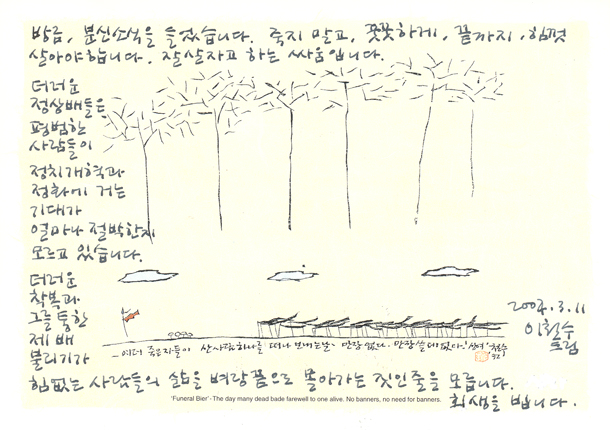 방금, 분신소식을 들었습니다. 죽지 말고, 꿋꿋하게, 끝까지, 힘껏
살아야합니다. 잘살자고 하는 싸움입니다.
더러운
정상배들은
평범한
사람들이
정치개혁과
정화에 거는
기대가
얼마나 절박한지
모르고 있습니다.
더러운
착복과
그를 통한
제 배
불리기가
힘없는 사람들의 삶을 벼랑끝으로 몰아가는 짓인줄을 모릅니다.
회생을 빕니다.
2004.3.11
이철수
드림
여러 죽은자들이 산사람하나를 떠나 보내는날 · 만장 없다. 만장 쓸데없다.
'Funeral Bier' - The day many dead bade farewell to one alive. No banners, no need for banners.